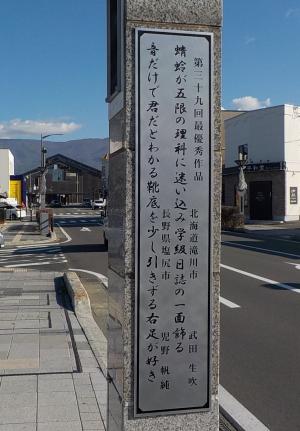 第三十九回最優秀作品
北海道滝川市　武田　生吹
蜻蛉が五限の理科に迷い込み学級日誌の一面飾る
長野県塩尻市　児野　帆純
音だけで君だとわかる靴底を少し引きずる右足が好き